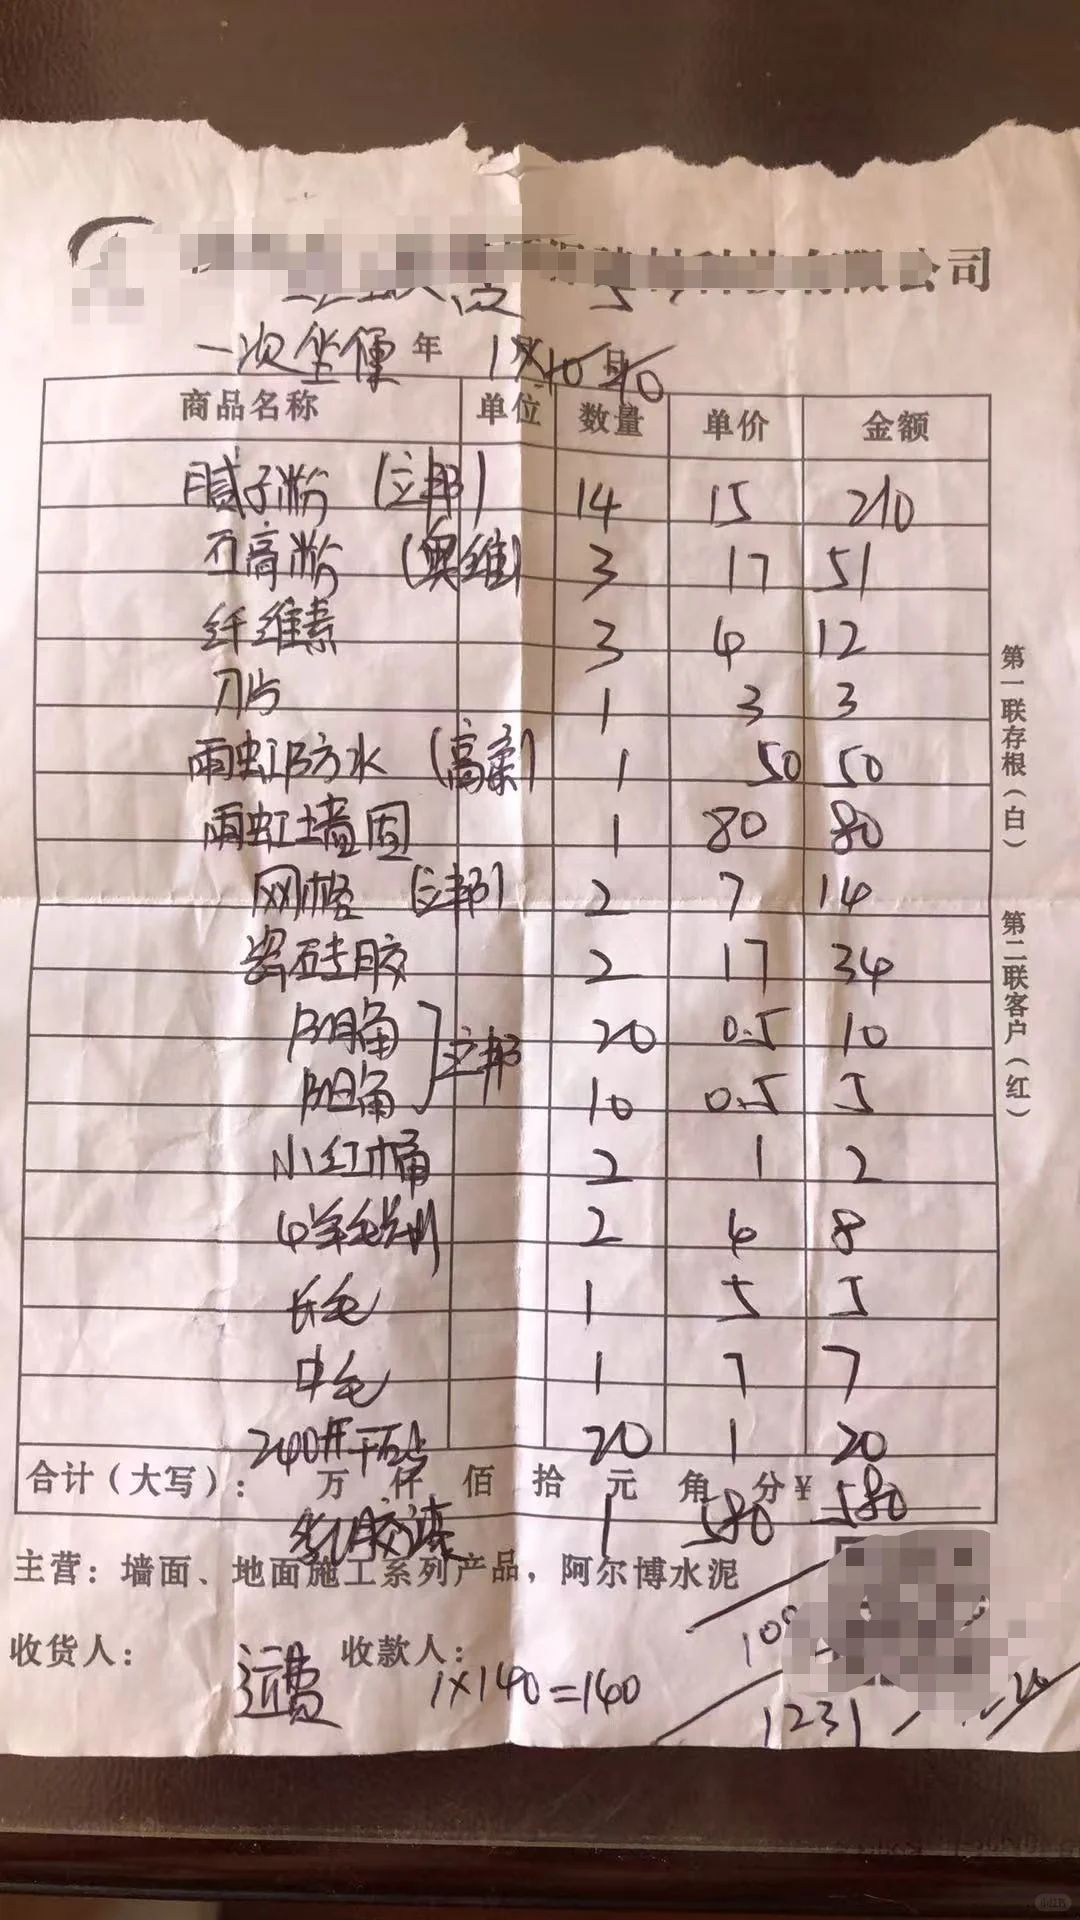 有限公司
一次坐便 年 1×40 40
商品名称 单位 数量 单价 金额
腻子粉 (立邦) 14 15 210
石膏粉 (奥维) 3 17 51
纤维素 3 4 12
刀片 1 3 3
雨虹防水 (高柔) 1 50 50
雨虹墙固 1 80 80
网格 (立邦) 2 7 14
瓷硅胶 2 17 34
阴角 立邦 20 0.5 10
阳角 10 0.5 5
小红桶 2 1 2
4羊毛刷 2 4 8
长毛 1 5 5
中毛 1 7 7
240#干砂 20 1 20
合计(大写): 万 仟 佰 拾 元 角 分¥
乳胶漆 1 580 580
主营:墙面、地面施工系列产品,阿尔博水泥
收货人: 收款人:
运费 1×140=140
1231
第一联存根(白)
第二联客户(红)